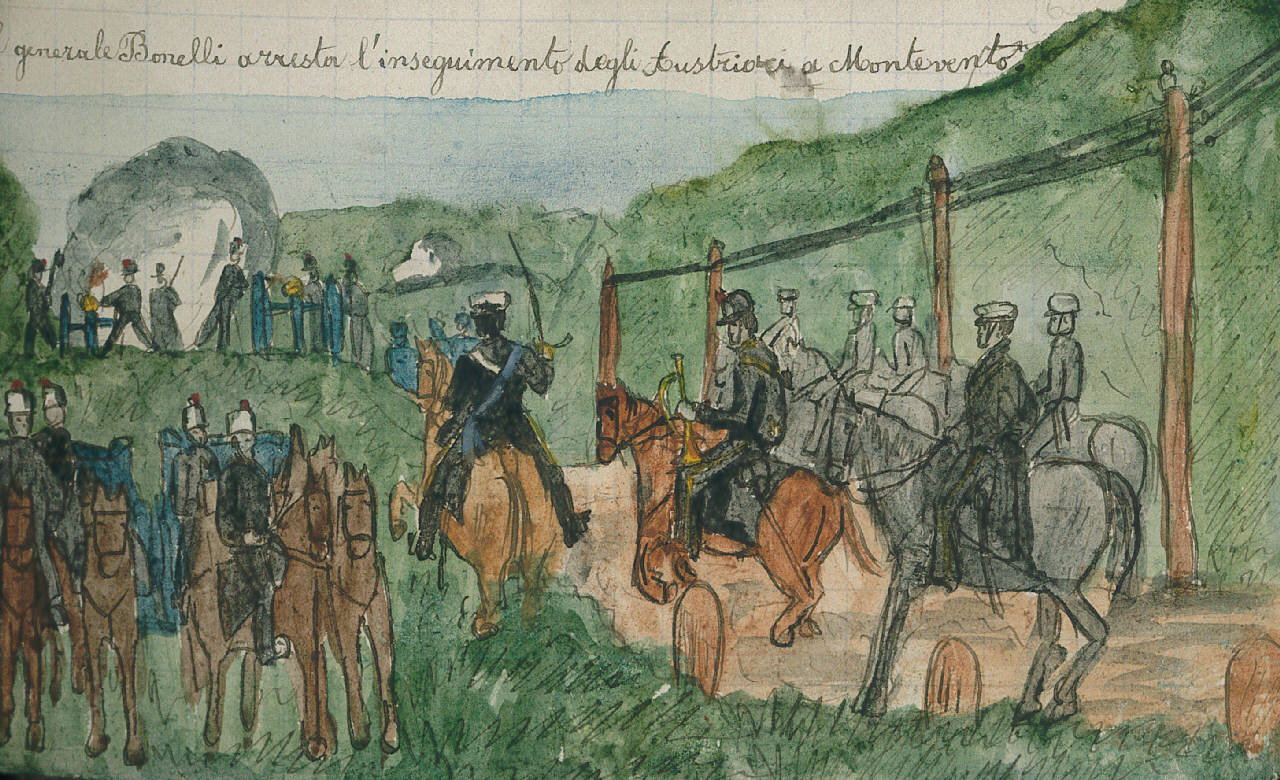 l generale Bonelli arresta l'inseguimento degli Austriaci a Montevento